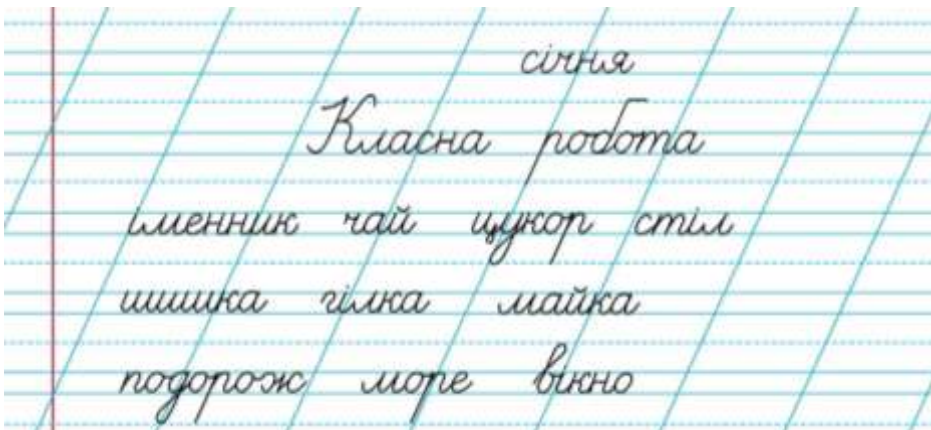 січня
Класна робота
іменник чай цукор стіл
шишка гілка майка
подорож море вікно